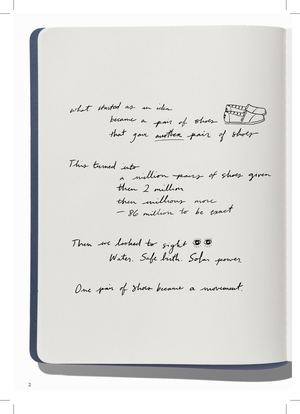 what started as an idea
became a pair of shoes
that gave another pair of shoes
This turned into
a million pairs of shoes given
then 2 million
then millions more
– 86 million to be exact
Then we looked to sight
Water. Safe birth. Solar power
One pair of shoes became a movement.
2